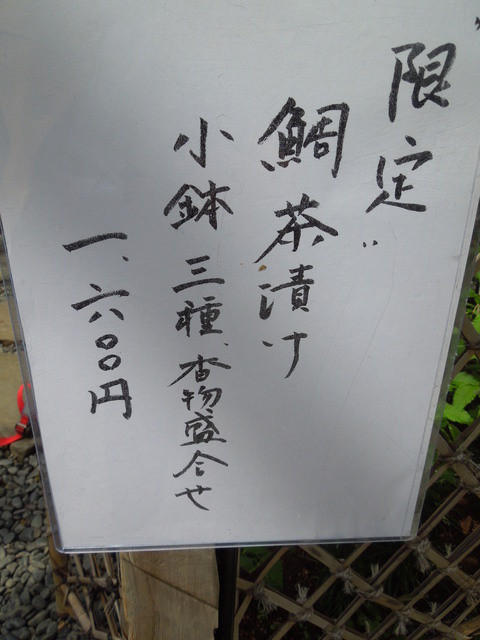 限定
鯛茶漬け
小鉢三種、香物盛合せ
一、六〇〇円